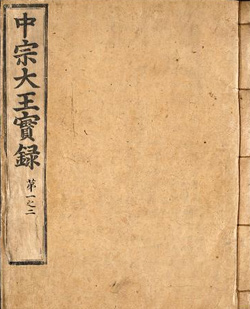 中宗大王實録
第一之二